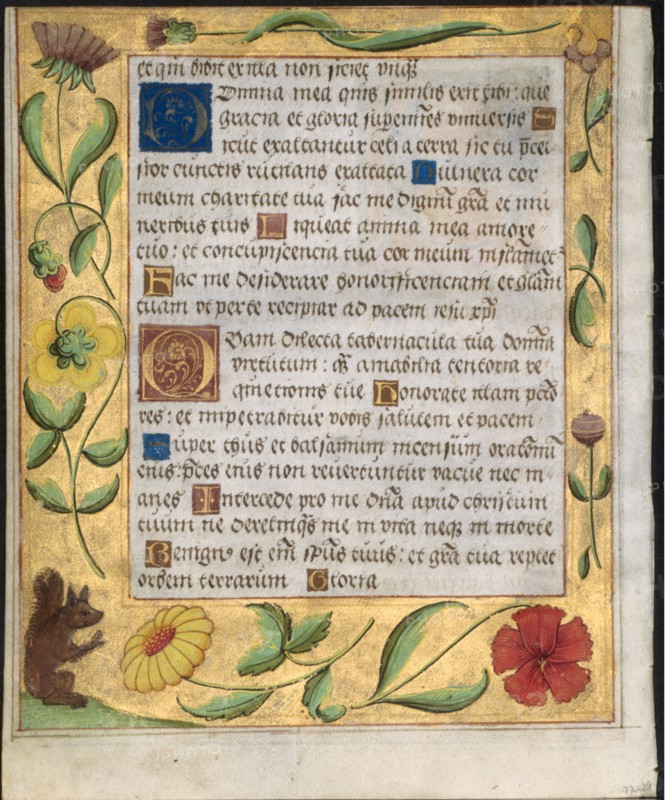 et qui bibit ex illa non sitiet unq̃
Domina mea quis similis erit tibi: que
gracia et gloria superemines universis S
icut exaltantur celi a terra sic tu p̄cel
sior cunctis rutilans exaltata Vulnera cor
meum charitate tua fac me dignũ grã et mu
neribus tuis Liqueat anima mea amore
tuo: et concupiscencia tua cor meum inflamet
Fac me desiderare honorificenciam et glãm
tuam ut per te recipiar ad pacem iesu xp̃i
Quam dilecta tabernacula tua domĩa
virtutum: q̃ amabilia tentoria re
quietionis tue Honorate illam pctõ
res: et impetrabitur vobis salutem et pacem
Super thus et balsamum incensum orationũ
eius: p̃ces eius non revertuntur vacue nec in
anes Intercede pro me dñã apud christum
tuum ne derelinq̃s me in vita neq̃ in morte
Benign⁹ est eñ sp̃us tuus: et grã tua replet
orbem terrarum Gloria